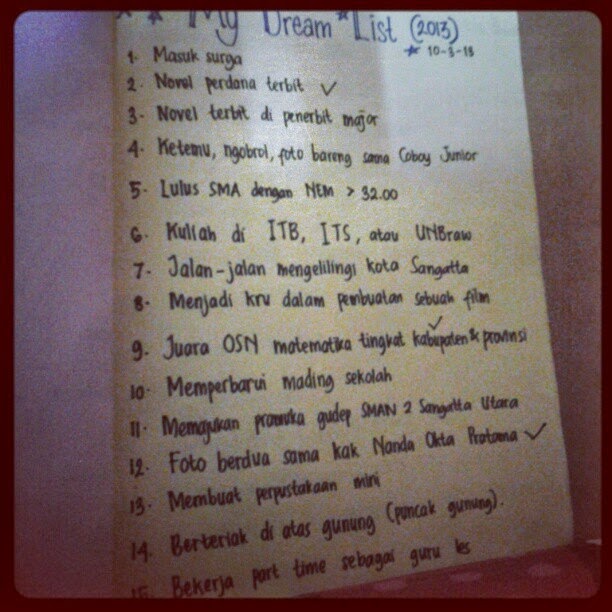 My Dream List (2013)
10-3-13
1. Masuk surga
2. Novel perdana terbit ✓
3. Novel terbit di penerbit major
4. Ketemu, ngobrol, foto bareng sama Coboy Junior
5. Lulus SMA dengan NEM > 32.00
6. Kuliah di ITB, ITS, atau UNBraw
7. Jalan-jalan mengelilingi kota Sangatta
8. Menjadi kru dalam pembuatan sebuah film
9. Juara OSN matematika tingkat kabupaten ✓ & provinsi
10. Memperbarui mading sekolah
11. Memajukan pramuka gudep SMAN 2 Sangatta Utara
12. Foto berdua sama kak Nanda Okta Pratama ✓
13. Membuat perpustakaan mini
14. Berteriak di atas gunung (puncak gunung).
15. Bekerja part time sebagai guru les